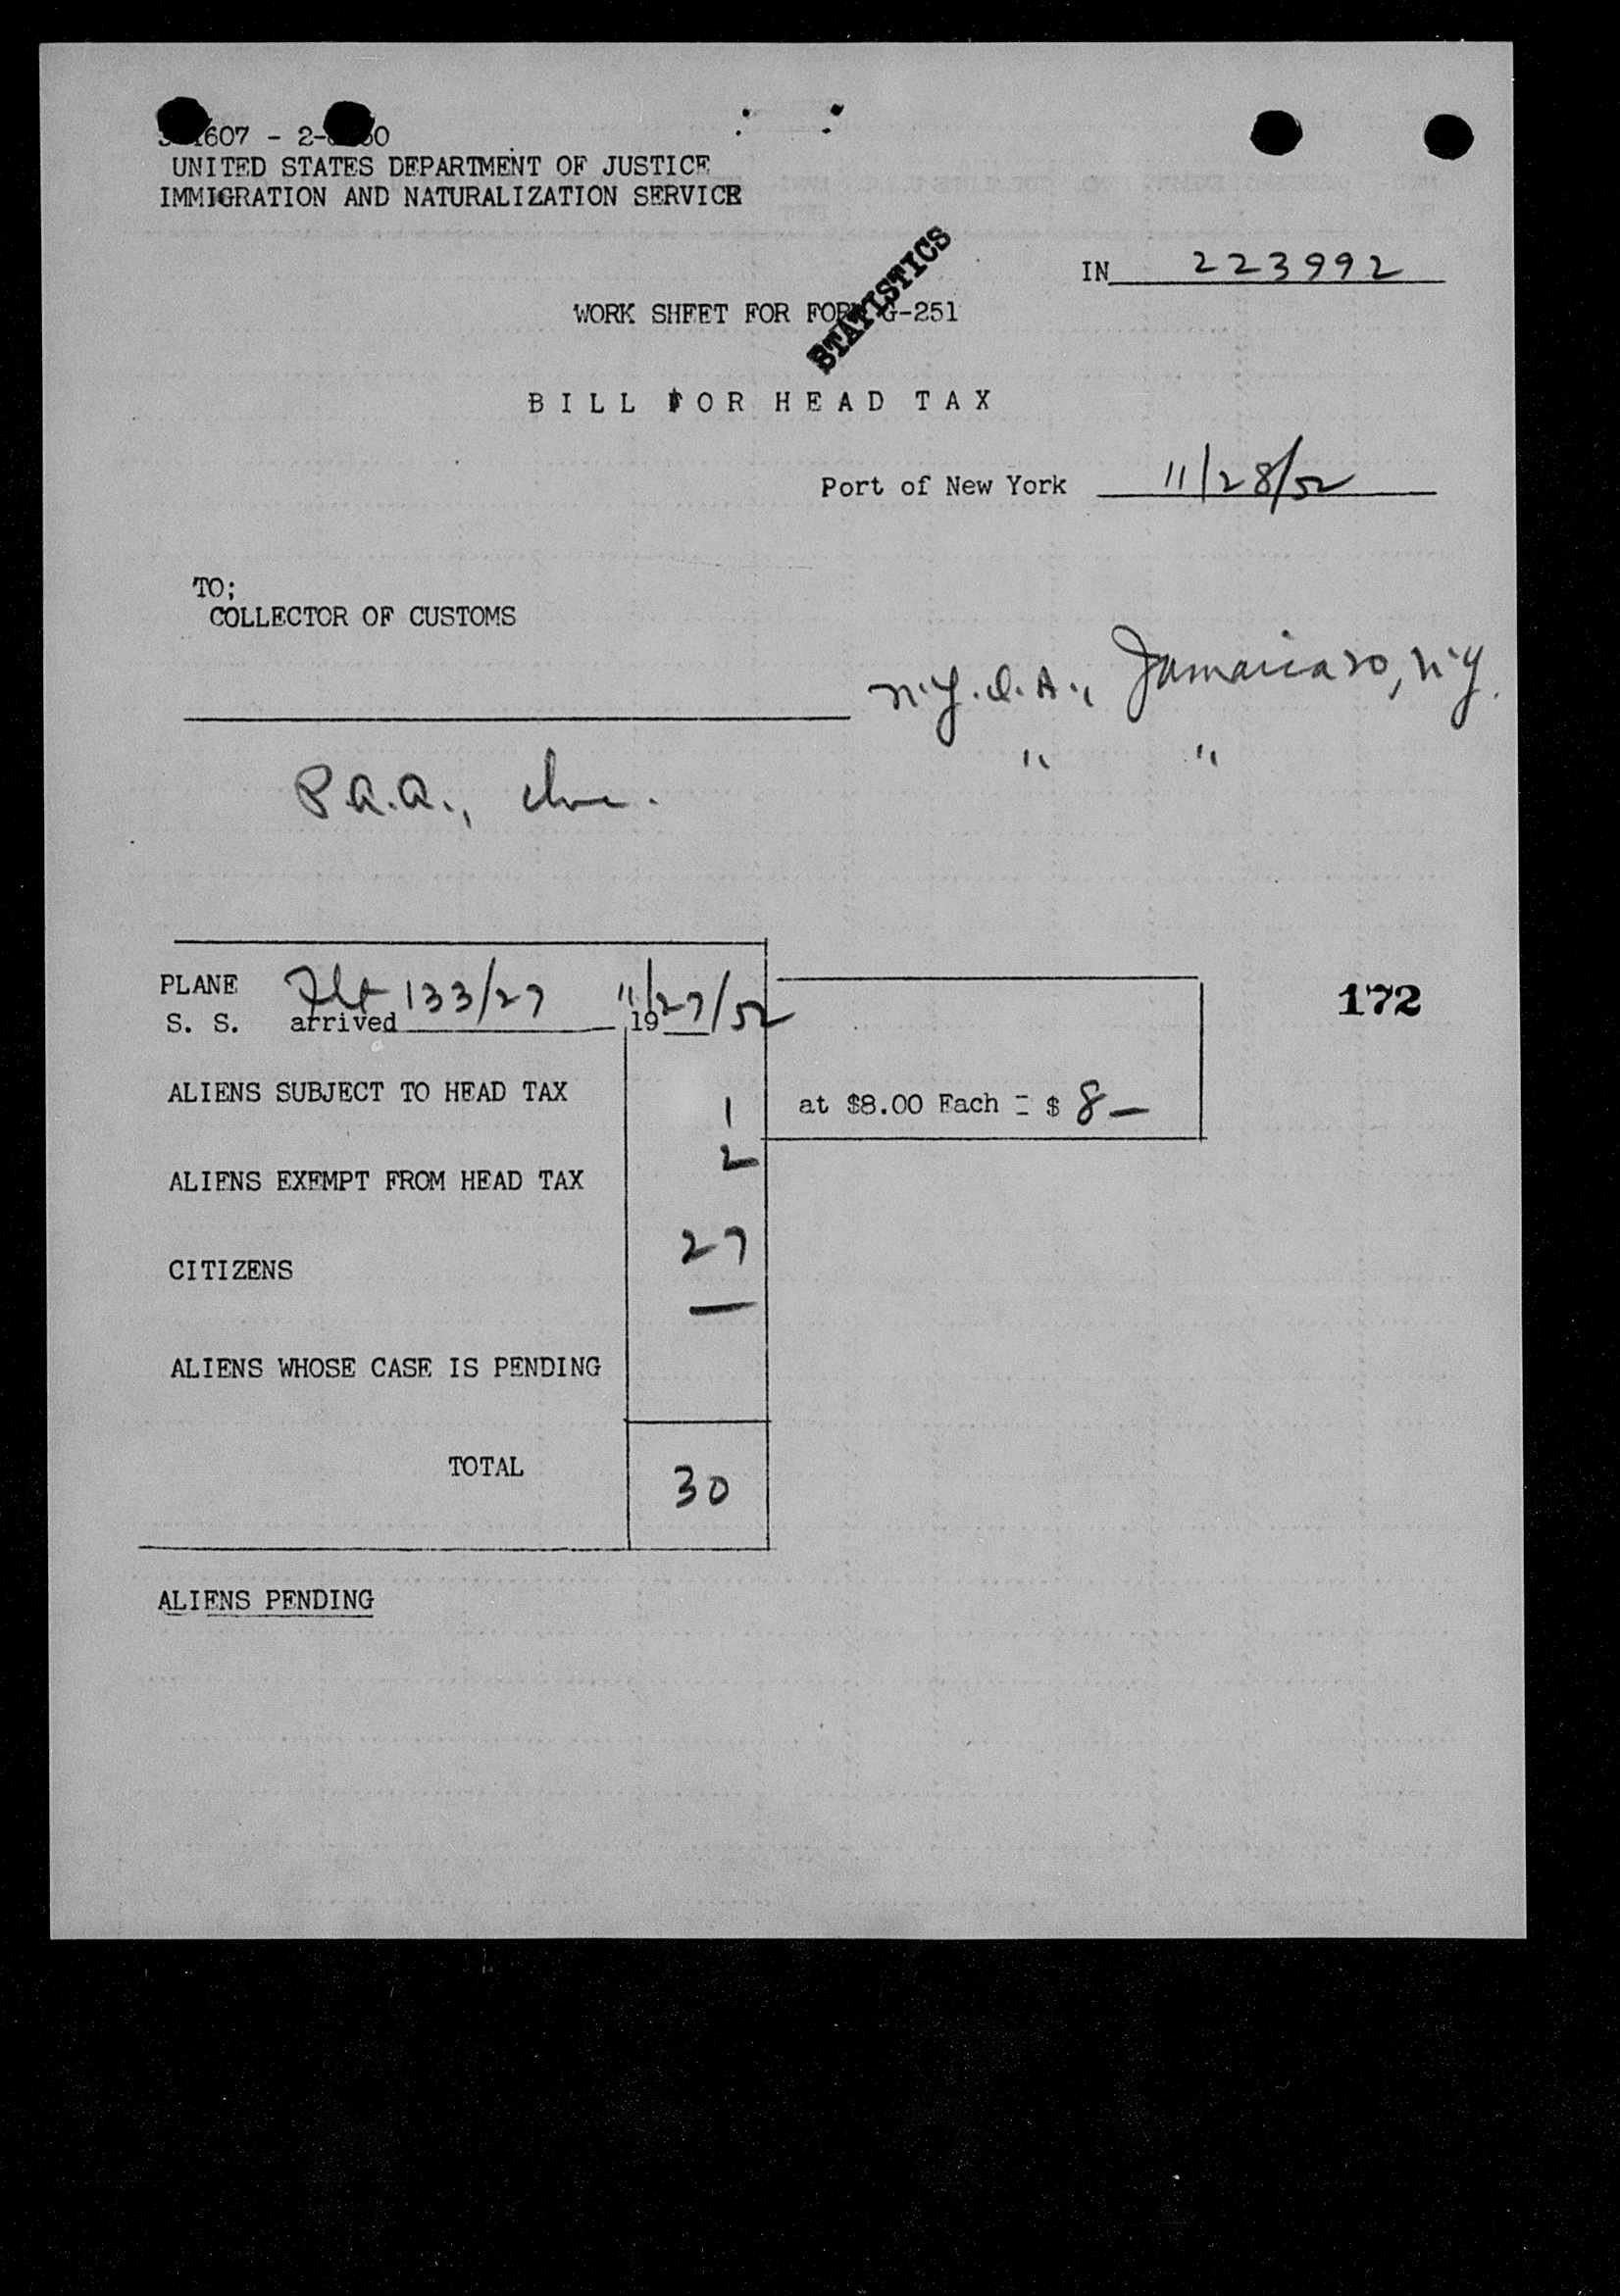 1607 - 2-
UNITED STATES DEPARTMENT OF JUSTICE
IMMIGRATION AND NATURALIZATION SERVICE
STATISTICS
IN 223992
WORK SHEET FOR FORM G-251
BILL FOR HEAD TAX
Port of New York 11/28/52
TO;
COLLECTOR OF CUSTOMS
N.Y.I.A., Jamaica 30, N.Y.
" "
P.A.A., Inc.
PLANE Flt 133/27 11/27/52
S. S. arrived 19
172
ALIENS SUBJECT TO HEAD TAX 1 at $8.00 Each = $ 8 —
ALIENS EXEMPT FROM HEAD TAX 2
CITIZENS 27
ALIENS WHOSE CASE IS PENDING —
TOTAL 30
ALIENS PENDING